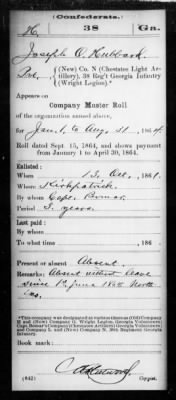 (Confederate.)
H, 38 Ga.
Joseph O. Hubbard
Pvt., (New) Co. N (Chestatee Light Artillery), 38 Reg't Georgia Infantry (Wright Legion).*
Appears on
Company Muster Roll
of the organization named above,
for Jan. 1, to Aug. 31, 1864.
Roll dated Sept. 15, 1864, and shows payment
from January 1 to April 30, 1864.
Enlisted:
When 15 Oct., 1861.
Where Kirkpatrick.
By whom Capt. Bomar
Period 3 years.
Last paid:
By whom
To what time , 186 .
Present or absent Absent.
Remarks: Absent without leave
since
*This company was designated at various times as (Old) Company
H and (New) Company G, Wright Legion, Georgia Volunteers;
Capt. Bomar's Company (Chestatee Artillery) Georgia Volunteers;
and Company L and (New) Company N, 38th Regiment Georgia
Infantry.
Book mark:
(642)
Copyist.